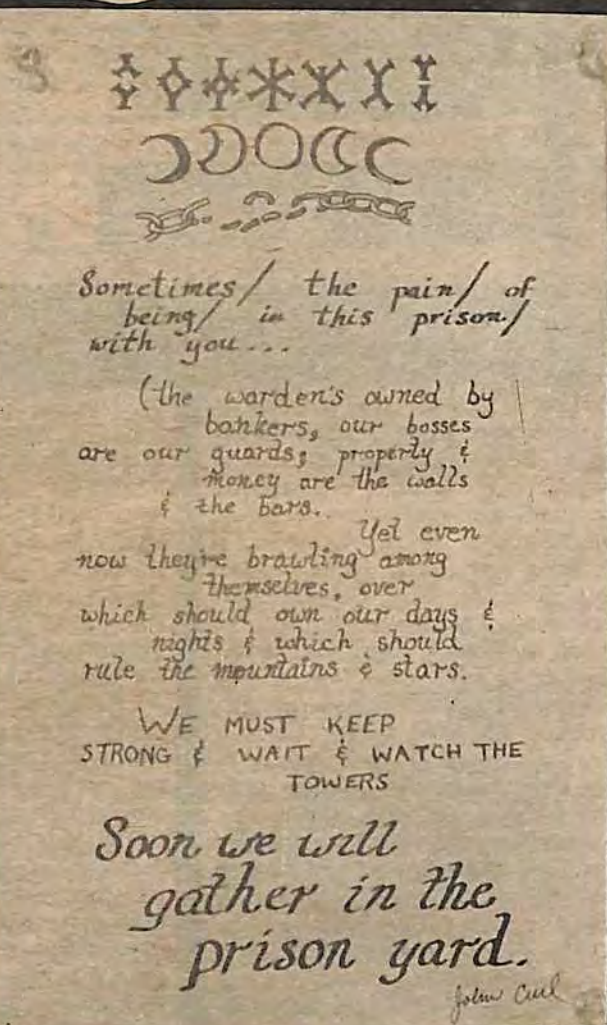 Sometimes/ the pain/ of
being/ in this prison/
with you...
(the warden's owned by
bankers, our bosses
are our guards; property &
money are the walls
& the bars.
Yet even
now they're brawling among
themselves, over
which should own our days &
nights & which should
rule the mountains & stars.
WE MUST KEEP
STRONG & WAIT & WATCH THE
TOWERS
Soon we will
gather in the
prison yard.
John Curl